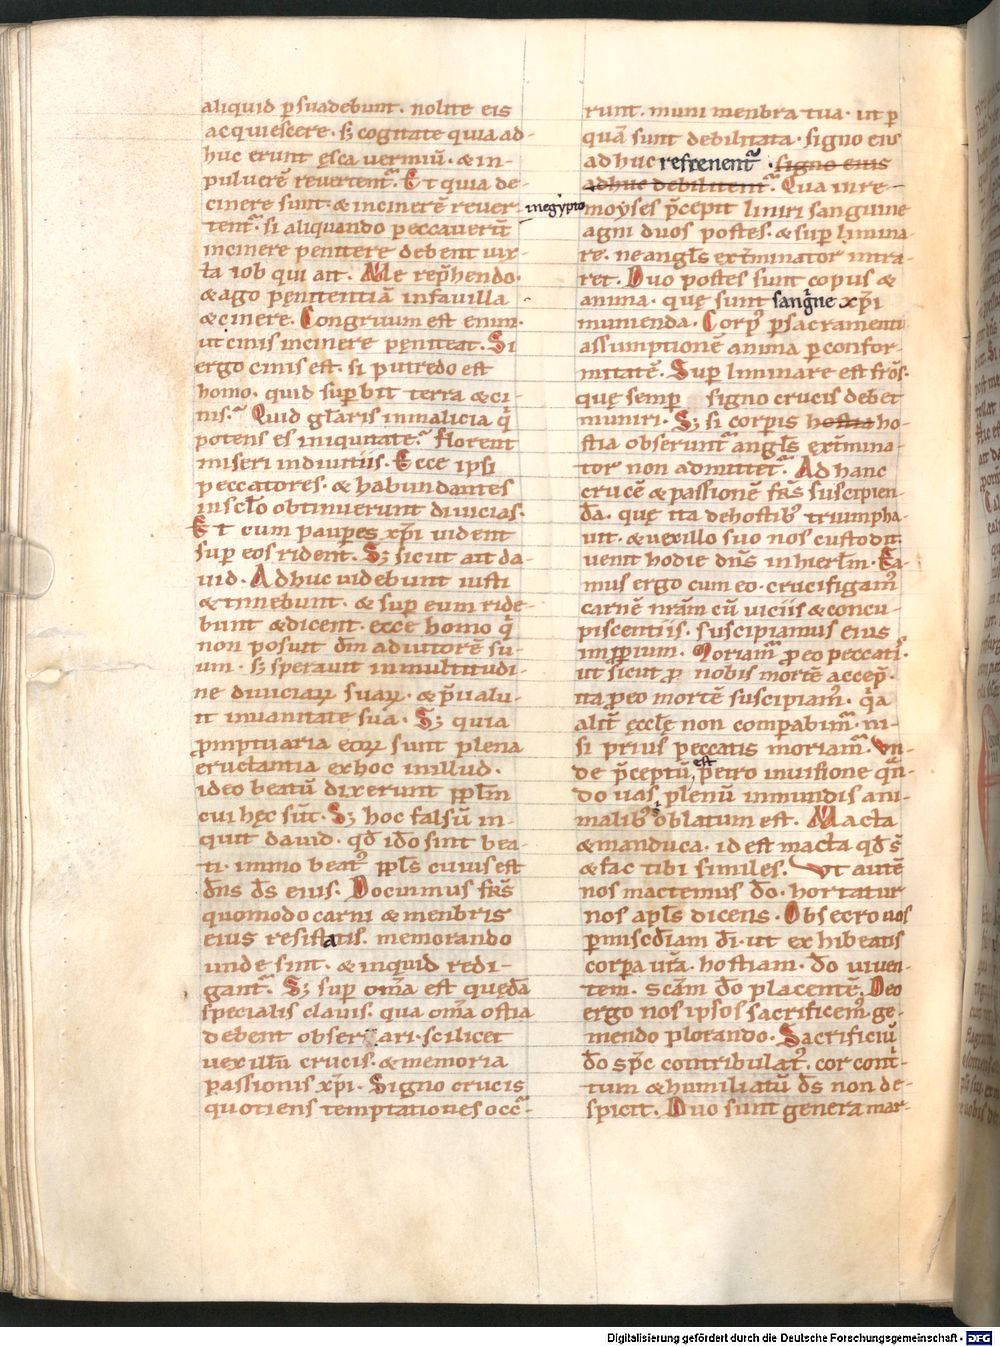 aliquid ꝑsuadebunt. nolite eis
acquiescere. sꝫ cogitate quia ad-
huc erunt ęsca uermiū. & in-
puluerē reuertent᷑. Et quia de-
cinere sunt. & incinerē reuer-
tent᷑. si aliquando peccauer̄t
incinere penitere debent iux-
ta iob qui ait. Me rep̄hendo.
& ago penitentiā infauilla
& cinere. Congruum est enim.
ut cinis incinere pęniteat. Si
ergo cinis est. si putredo est
homo. quid suꝑbit terra & ci-
nis. Quid gl̄aris inmalicia q̇
potens es iniquitate. florent
miseri indiuitiis. Ecce ipsi
peccatores. & habundantes
insc̄lo obtinuerunt diuicias.
Et cum pauꝑes xp̄i uident
suꝑ eos rident. Sꝫ sicut ait da-
uid. Adhuc uidebunt iusti
& timebunt. & suꝑ eum ride-
bunt & dicent. ecce homo q̇
non posuit dm̄ adiutorē su-
um. sꝫ sperauit inmultitudi-
ne diuiciaꝝ suaꝝ. & p̄ualu-
it inuanitate sua. Sꝫ quia
ꝓmptuaria eoꝝ sunt plena
eructantia exhoc inillud.
ideo beatū dixerunt ppl̄m
cui hęc sūt. Sꝫ hoc falsū in-
quit dauid. qd̄ iđo sint bea-
ti. immo beat᷒ ppl̄s cuius est
dn̄s ds̄ eius. Docuimus frs̄
quomodo carni & menbris
eius resistatis. memorando
unde sint. & inquid redi-
gant᷑. Sꝫ suꝑ om̄a est quędā
specialis clauis. qua om̄a ostia
debent obseruari. scilicet
uexillū crucis. & memoria
passionis xp̄i. Signo crucis
quotiens temptationes occ̄-
inegypto
runt. muni menbra tua. ut ꝑ
quā sunt debilitata. signo eius
adhuc refrenent᷑. signo eius
adhuc debilitent᷑. Qua in re
moẏses p̄cepit liniri sanguine
agni duos postes. & suꝑ limina-
re. ne angl̄s ext̄minator intra-
ret. Duo postes sunt corpus &
anima. quę sunt sangine xp̄i
munienda. Corp᷒ ꝑ sacramenti
assumptionē anima ꝑ confor-
mitatē. Suꝑ liminare est frōs.
quę semꝑ signo crucis debet
muniri. Sꝫ si corꝑis hostia ho-
stia obserunt᷑ angl̄s ext̄mina-
tor non admittet᷑. Ad hanc
crucē & passionē frs̄ suscipien-
da. quę ita dehostib᷒ triumpha-
uit. & uexillo suo nos custodit.
uenit hodie dn̄s in hierl̄m. Ea-
mus ergo cum eo. crucifigam᷒
carnē nrām cū uiciis & concu-
piscentiis. suscipiamus eius
imꝑium. Moriam᷑ ꝓ eo peccatis.
ut sicut ꝓ nobis mortē accep̄.
ita ꝓ eo mortē suscipiam᷒. q̇a
alit̄ ęcclę non comꝑabim᷑. ni-
si prius peccatis moriam᷑. Vn-
de p̄ceptū est petro inuisione qn̄-
do uas plenū inmundis ani-
malib᷒ ei oblatum est. Macta
& manduca. id est macta qd̄ s̄
& fac tibi similes. Vt autē
nos mactemus đo. hortatur
nos apl̄s dicens. Obsecro uos
ꝑ misc̄diam đi. ut exhibeatis
corꝑa ur̄a. hostiam. đo uiuen-
tem. scām đo placentē. Deo
ergo nos ipsos sacrificem᷒. ge-
mendo plorando. Sacrificiū
đo sp̄c contribulat᷒. cor cont̄-
tum & humiliatū ds̄ non de-
spicit. Duo sunt genera mar-
Digitalisierung gefördert durch die Deutsche Forschungsgemeinschaft - DFG